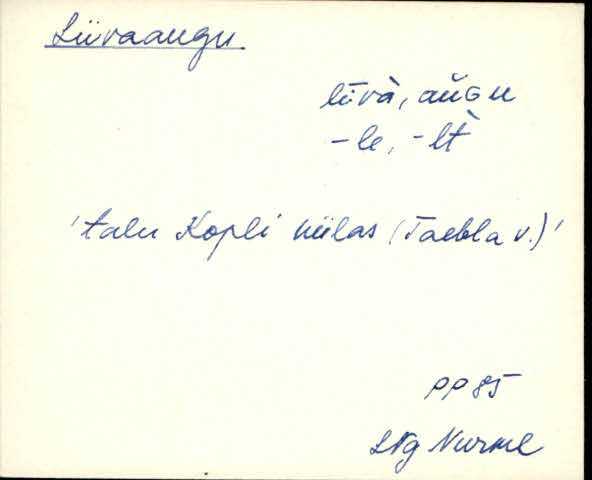 Liivaaugu
līvà, aŭGu
-le, -lt̀
'talu Kopli külas (Taebla v.)'
PP 85
LNg Nurme